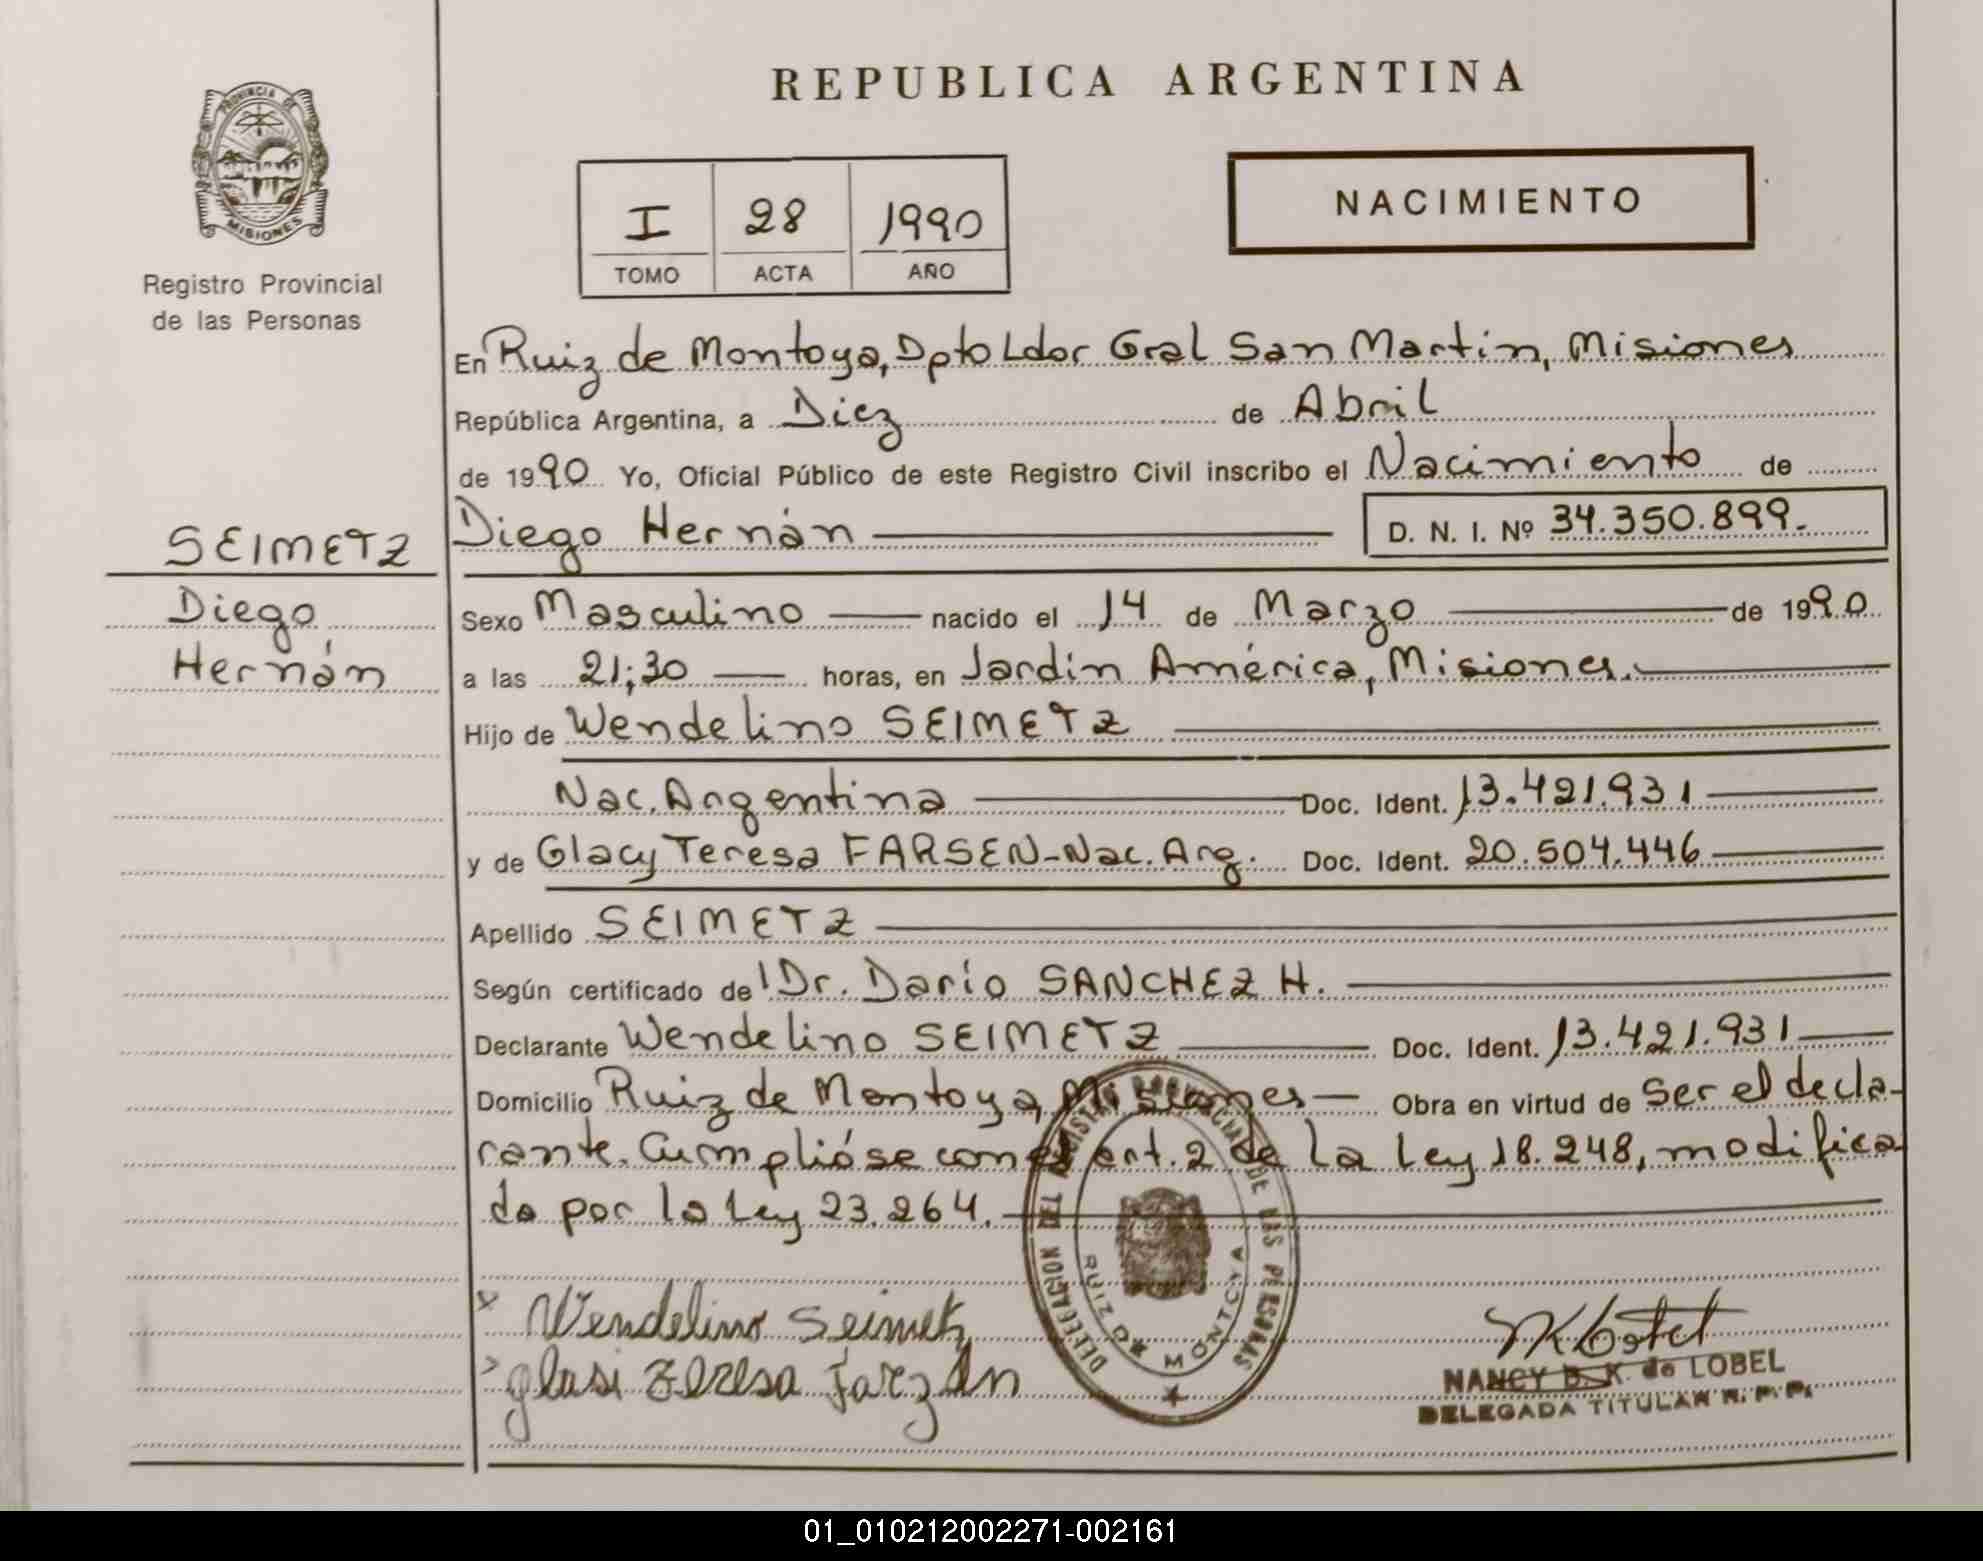 REPUBLICA ARGENTINA
PROVINCIA DE
MISIONES
Registro Provincial
de las Personas
I 28 1990
TOMO ACTA AÑO
NACIMIENTO
En Ruiz de Montoya, Dpto Ldor Gral San Martín, Misiones
República Argentina, a Diez de Abril
de 1990 Yo, Oficial Público de este Registro Civil inscribo el Nacimiento de
Diego Hernán D. N. I. Nº 34.350.899.
SEIMETZ
Diego
Hernán
Sexo Masculino nacido el 14 de Marzo de 1990
a las 21;30 horas, en Jardín América, Misiones.
Hijo de Wendelino SEIMETZ
Nac. Argentina Doc. Ident. 13.421.931
y de Glacy Teresa FARSEN-Nac. Arg. Doc. Ident. 20.504.446
Apellido SEIMETZ
Según certificado de l Dr. Darío SANCHEZ H.
Declarante Wendelino SEIMETZ Doc. Ident. 13.421.931
Domicilio Ruiz de Montoya, Misiones Obra en virtud de ser el decla-
rante. Cumplióse con el art. 2 de la Ley 18.248, modifica-
do por la Ley 23.264.
DELEGACION DEL REGISTRO PROVINCIAL DE LAS PERSONAS
RUIZ D MONTOYA
x Wendelino Seimetz
glasi Teresa Farzen
NANCY B. K. de LOBEL
DELEGADA TITULAR R. P. P.
01_010212002271-002161